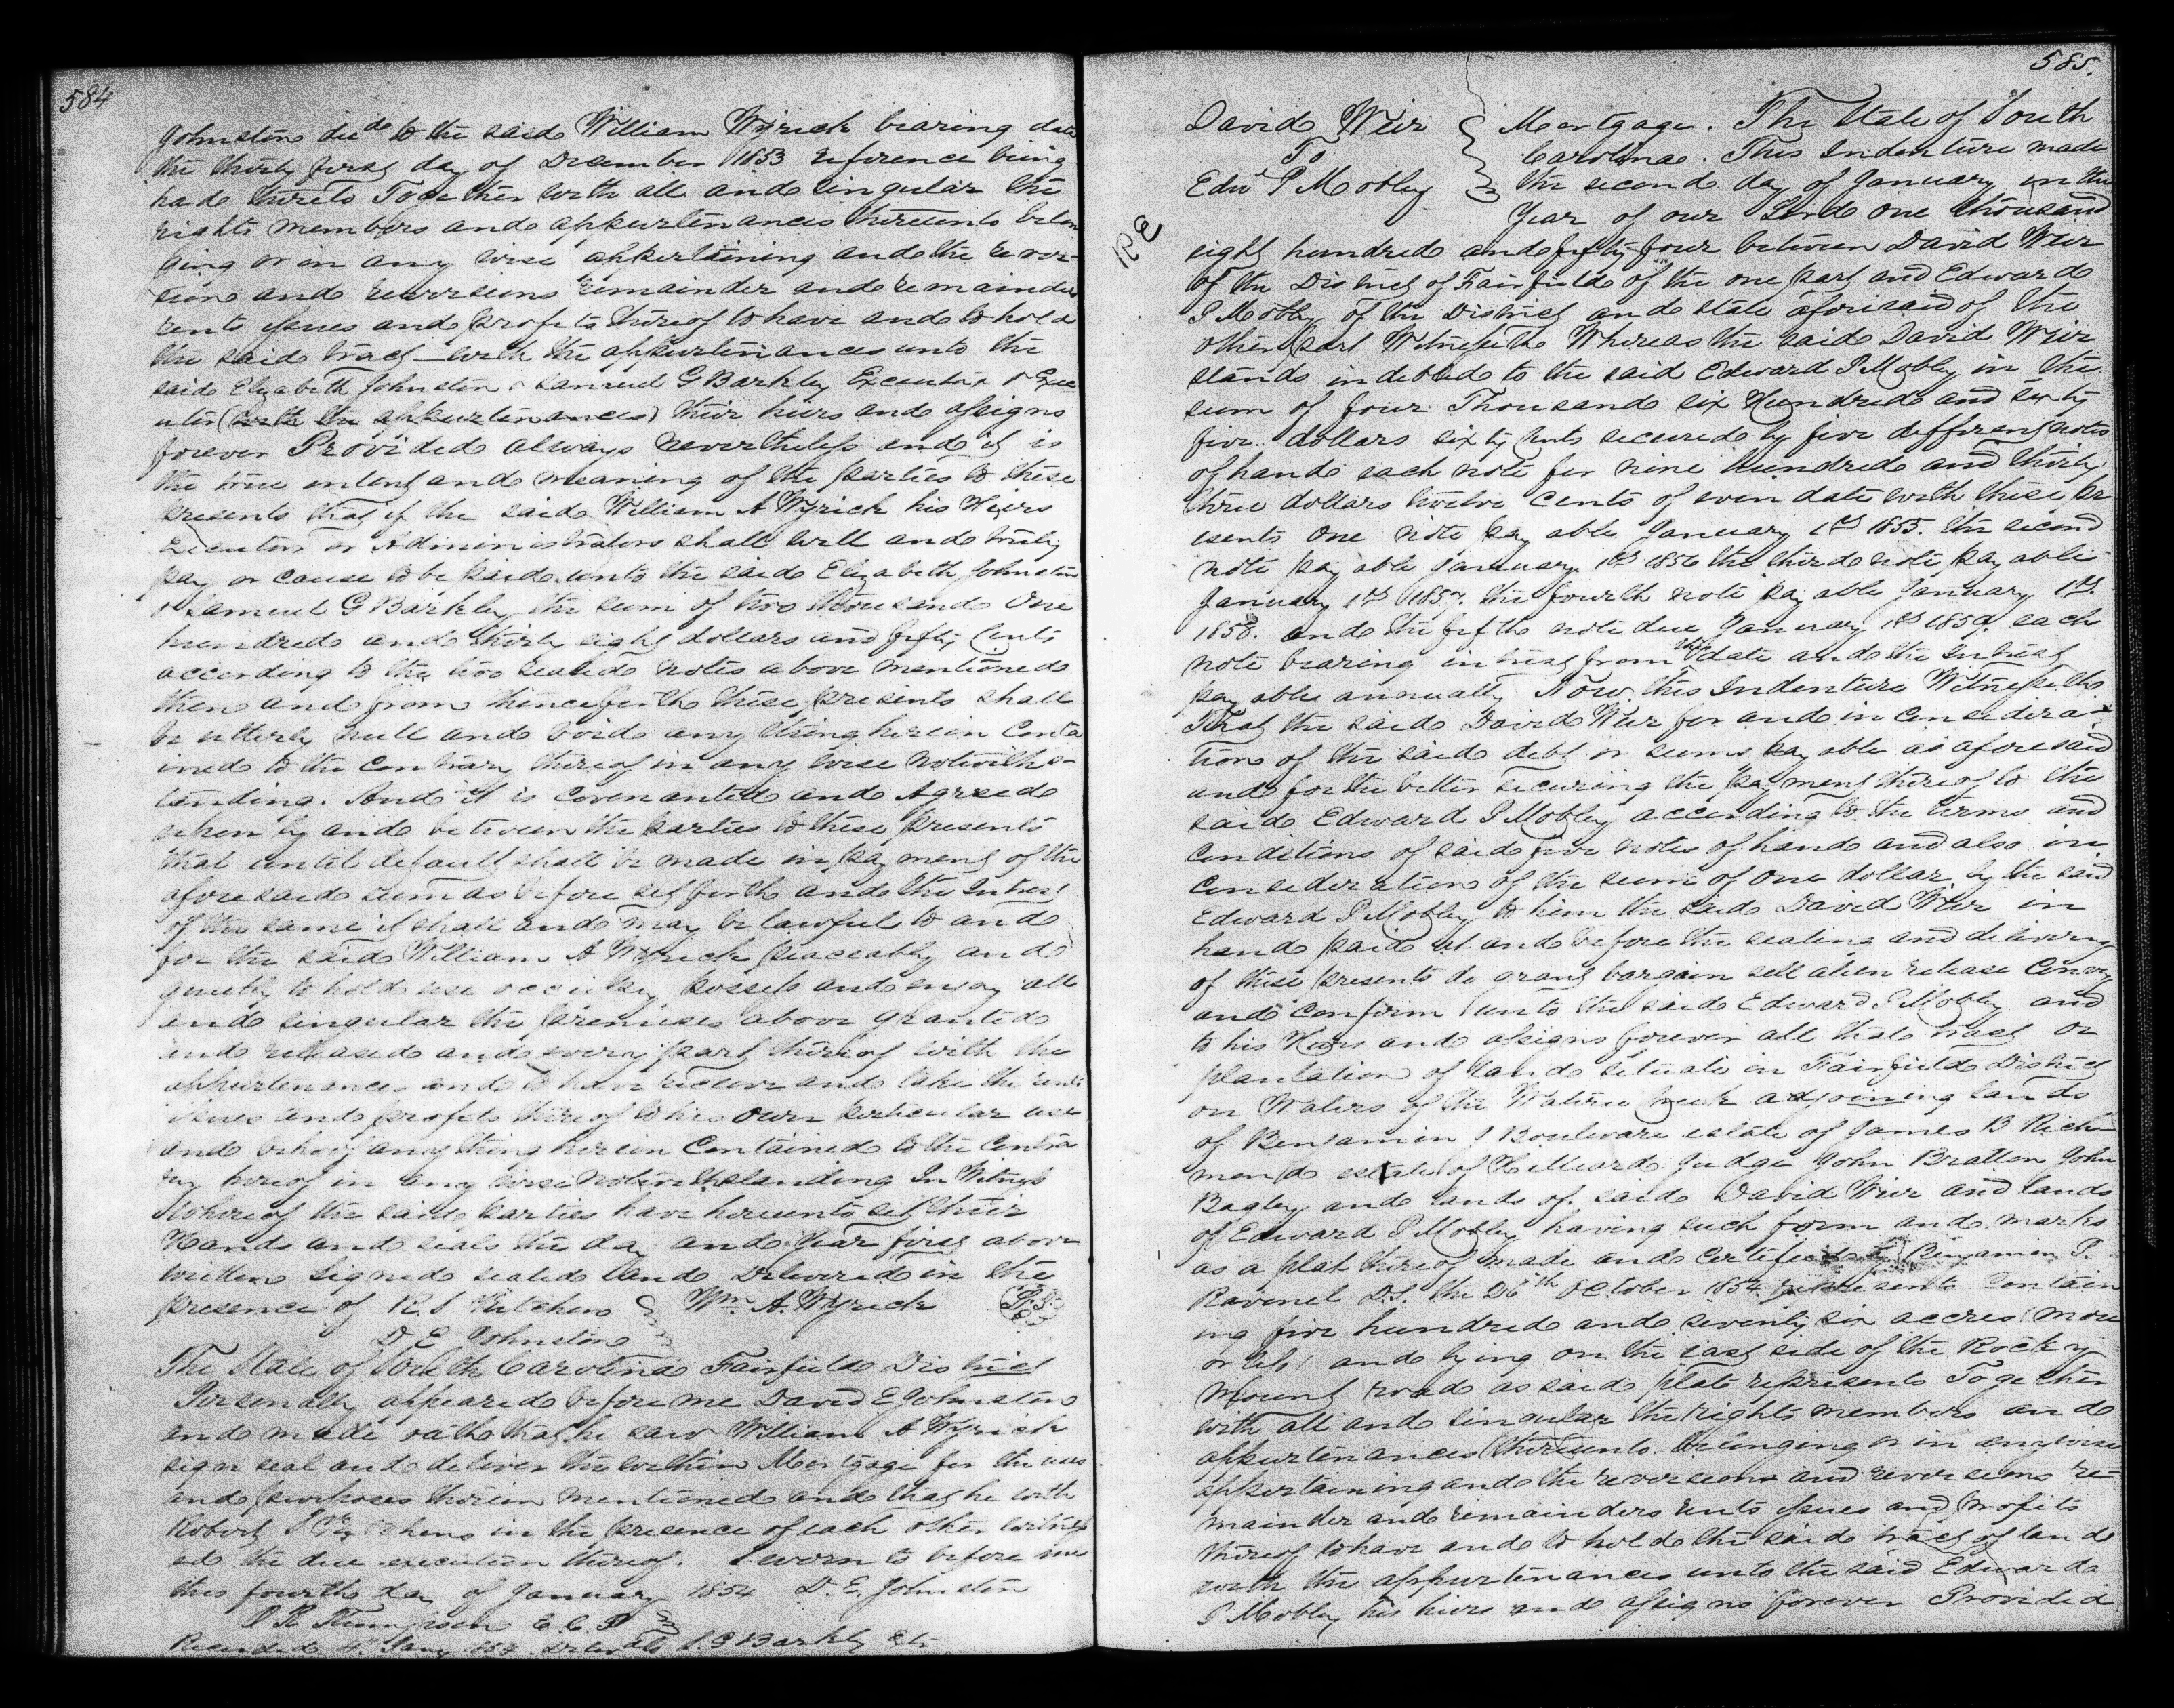 584
Johnston deed to the said William Wyrick bearing date
the thirty first day of December 1853 reference being
had thereto Together with all and singular the
rights members and appurtenances thereunto belon
ging or in any wise appertaining and the rever-
sion and reversions remainder and remainders
rents issues and profits thereof to have and to hold
the said tract with the appurtenances unto the
said Elizabeth Johnston & Samuel G Barkley Executrix & Exec
utor (with the appurtenances) their heirs and assigns
forever Provided always nevertheless and it is
the true intent and meaning of the parties to these
presents that if the said William A Wyrick his Heirs
Executors or Administrators shall well and truly
pay or cause to be paid unto the said Elizabeth Johnston
& Samuel G Barkley the sum of two thousand One
hundred and thirty eight dollars and fifty Cents
according to the two sealed notes above mentioned
then and from thenceforth these presents shall
be utterly null and void any thing herein Conta
ined to the Contrary thereof in any wise notwiths-
tanding. And it is Covenanted and Agreed
by and between the parties to these presents
that until default shall be made in payment of the
aforesaid sum as before set forth and the Intrest
of the same it shall and may be lawful to and
for the said William A Wyrick peaceably and
quietly to hold use occupy possess and enjoy all
and singular the premises above granted
and released and every part thereof with the
appurtenances and to have receive and take the rents
issues and profits thereof to his own perticular use
and behoof any thing herein Contained to the Contra
ry hereof in any wise notwithstanding In Witness
whereof the said parties have hereunto set their
Hands and seals the day and Year first above
written Signed sealed and Delivered in the
presence of R. S. Ketchens Wm. A. Wyrick L.S.
D E Johnston
The State of South Carolina Fairfield District
Personally appeared before me David E Johnston
and made oath that he saw William A Wyrick
sign seal and deliver the within Mortgage for the uses
and purposes therein mentioned and that he with
Robert S Ketchens in the presence of each other witness
ed the due execution thereof. Sworn to before me
this fourth day of January 1854 D. E. Johnston
Recorded 4th Jany 1854. Deliv to S. G Barkley
585.
David Weir Mortgage. The State of South
To Carolina. This Indenture made
Edwd P Mobley the second day of January in the
Year of our Lord one thousand
RE
eight hundred and fifty four between David Weir
of the District of Fairfield of the one part and Edward
P Mobley of the District and state aforesaid of the
other part Witnesseth Whereas the said David Weir
stands indebted to the said Edward P Mobley in the
sum of four Thousand six Hundred and sixty
five dollars sixty Cents secured by five different notes
of hand each note for nine hundred and thirty
three dollars twelve Cents of even date with these pr
esents One note payable January 1st 1855. the second
note payable January 1st 1856 the third note payable
January 1st 1857. the fourth note payable January 1st.
1858. and the fifth note due January 1st 1859. each
note bearing intrest from the date and the Intrest
payable annually Now this Indenture Witnesseth
That the said David Weir for and in Considera-
tion of the said debt or sums payable as aforesaid
and for the better securing the payment thereof to the
said Edward P Mobley according to the terms and
Conditions of said five notes of hand and also in
Consideration of the sum of one dollar by the said
Edward P Mobley to him the said David Weir in
hand paid at and before the sealing and delivery
of these presents do grant bargain sell alien release Convey
and Confirm unto the said Edward P Mobley and
to his Heirs and assigns forever all that tract or
plantation of land situate in Fairfield District
on Waters of the Wateree Creek adjoining lands
of Benjamin J Boulware estate of James B Rich-
mond estate of Hilliard Judge John Bratton John
Bagley and lands of said David Weir and lands
of Edward P Mobley having such form and marks
as a plat thereof made and Certified by Benjamin P.
Ravenel D.S. the 26th October 1854 represents Contain
ing five hundred and seventy six accres (more
or less) and lying on the east side of the Rocky
Mount road as said plat represents Together
with all and singular the rights members and
appurtenances thereunto belonging or in anywise
appertaining and the reversion and reversions re-
mainder and remainders rents issues and profits
thereof to have and to hold the said tract of land
with the appurtenances unto the said Edward
P Mobley his heirs and assigns forever Provided